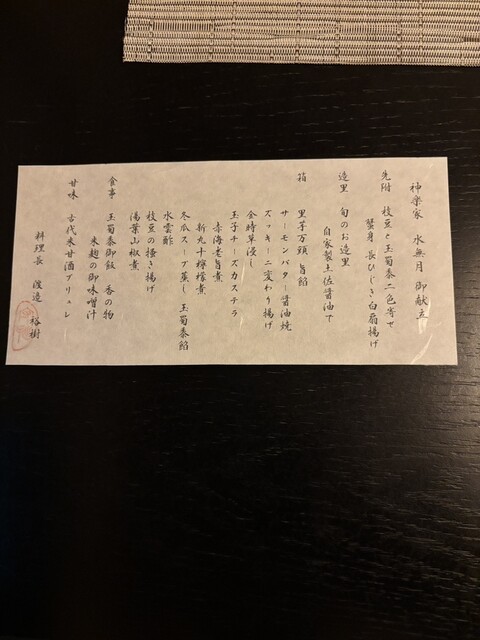 神楽家 水無月 御献立
先附 枝豆と玉蜀黍二色寄せ
蟹身 長ひじき白扇揚げ
造里 旬のお造里
自家製土佐醤油で
箱 里芋万頭 旨餡
サーモンバター醤油焼
ズッキーニ変わり揚げ
金時草浸し
玉子チーズカステラ
赤海老旨煮
新丸十檸檬煮
冬瓜スープ蒸し 玉蜀黍餡
水雲酢
枝豆の掻き揚げ
湯葉山椒煮
食事 玉蜀黍御飯 香の物
米麹の御味噌汁
甘味 古代米甘酒ブリュレ
料理長 渡邉 裕樹